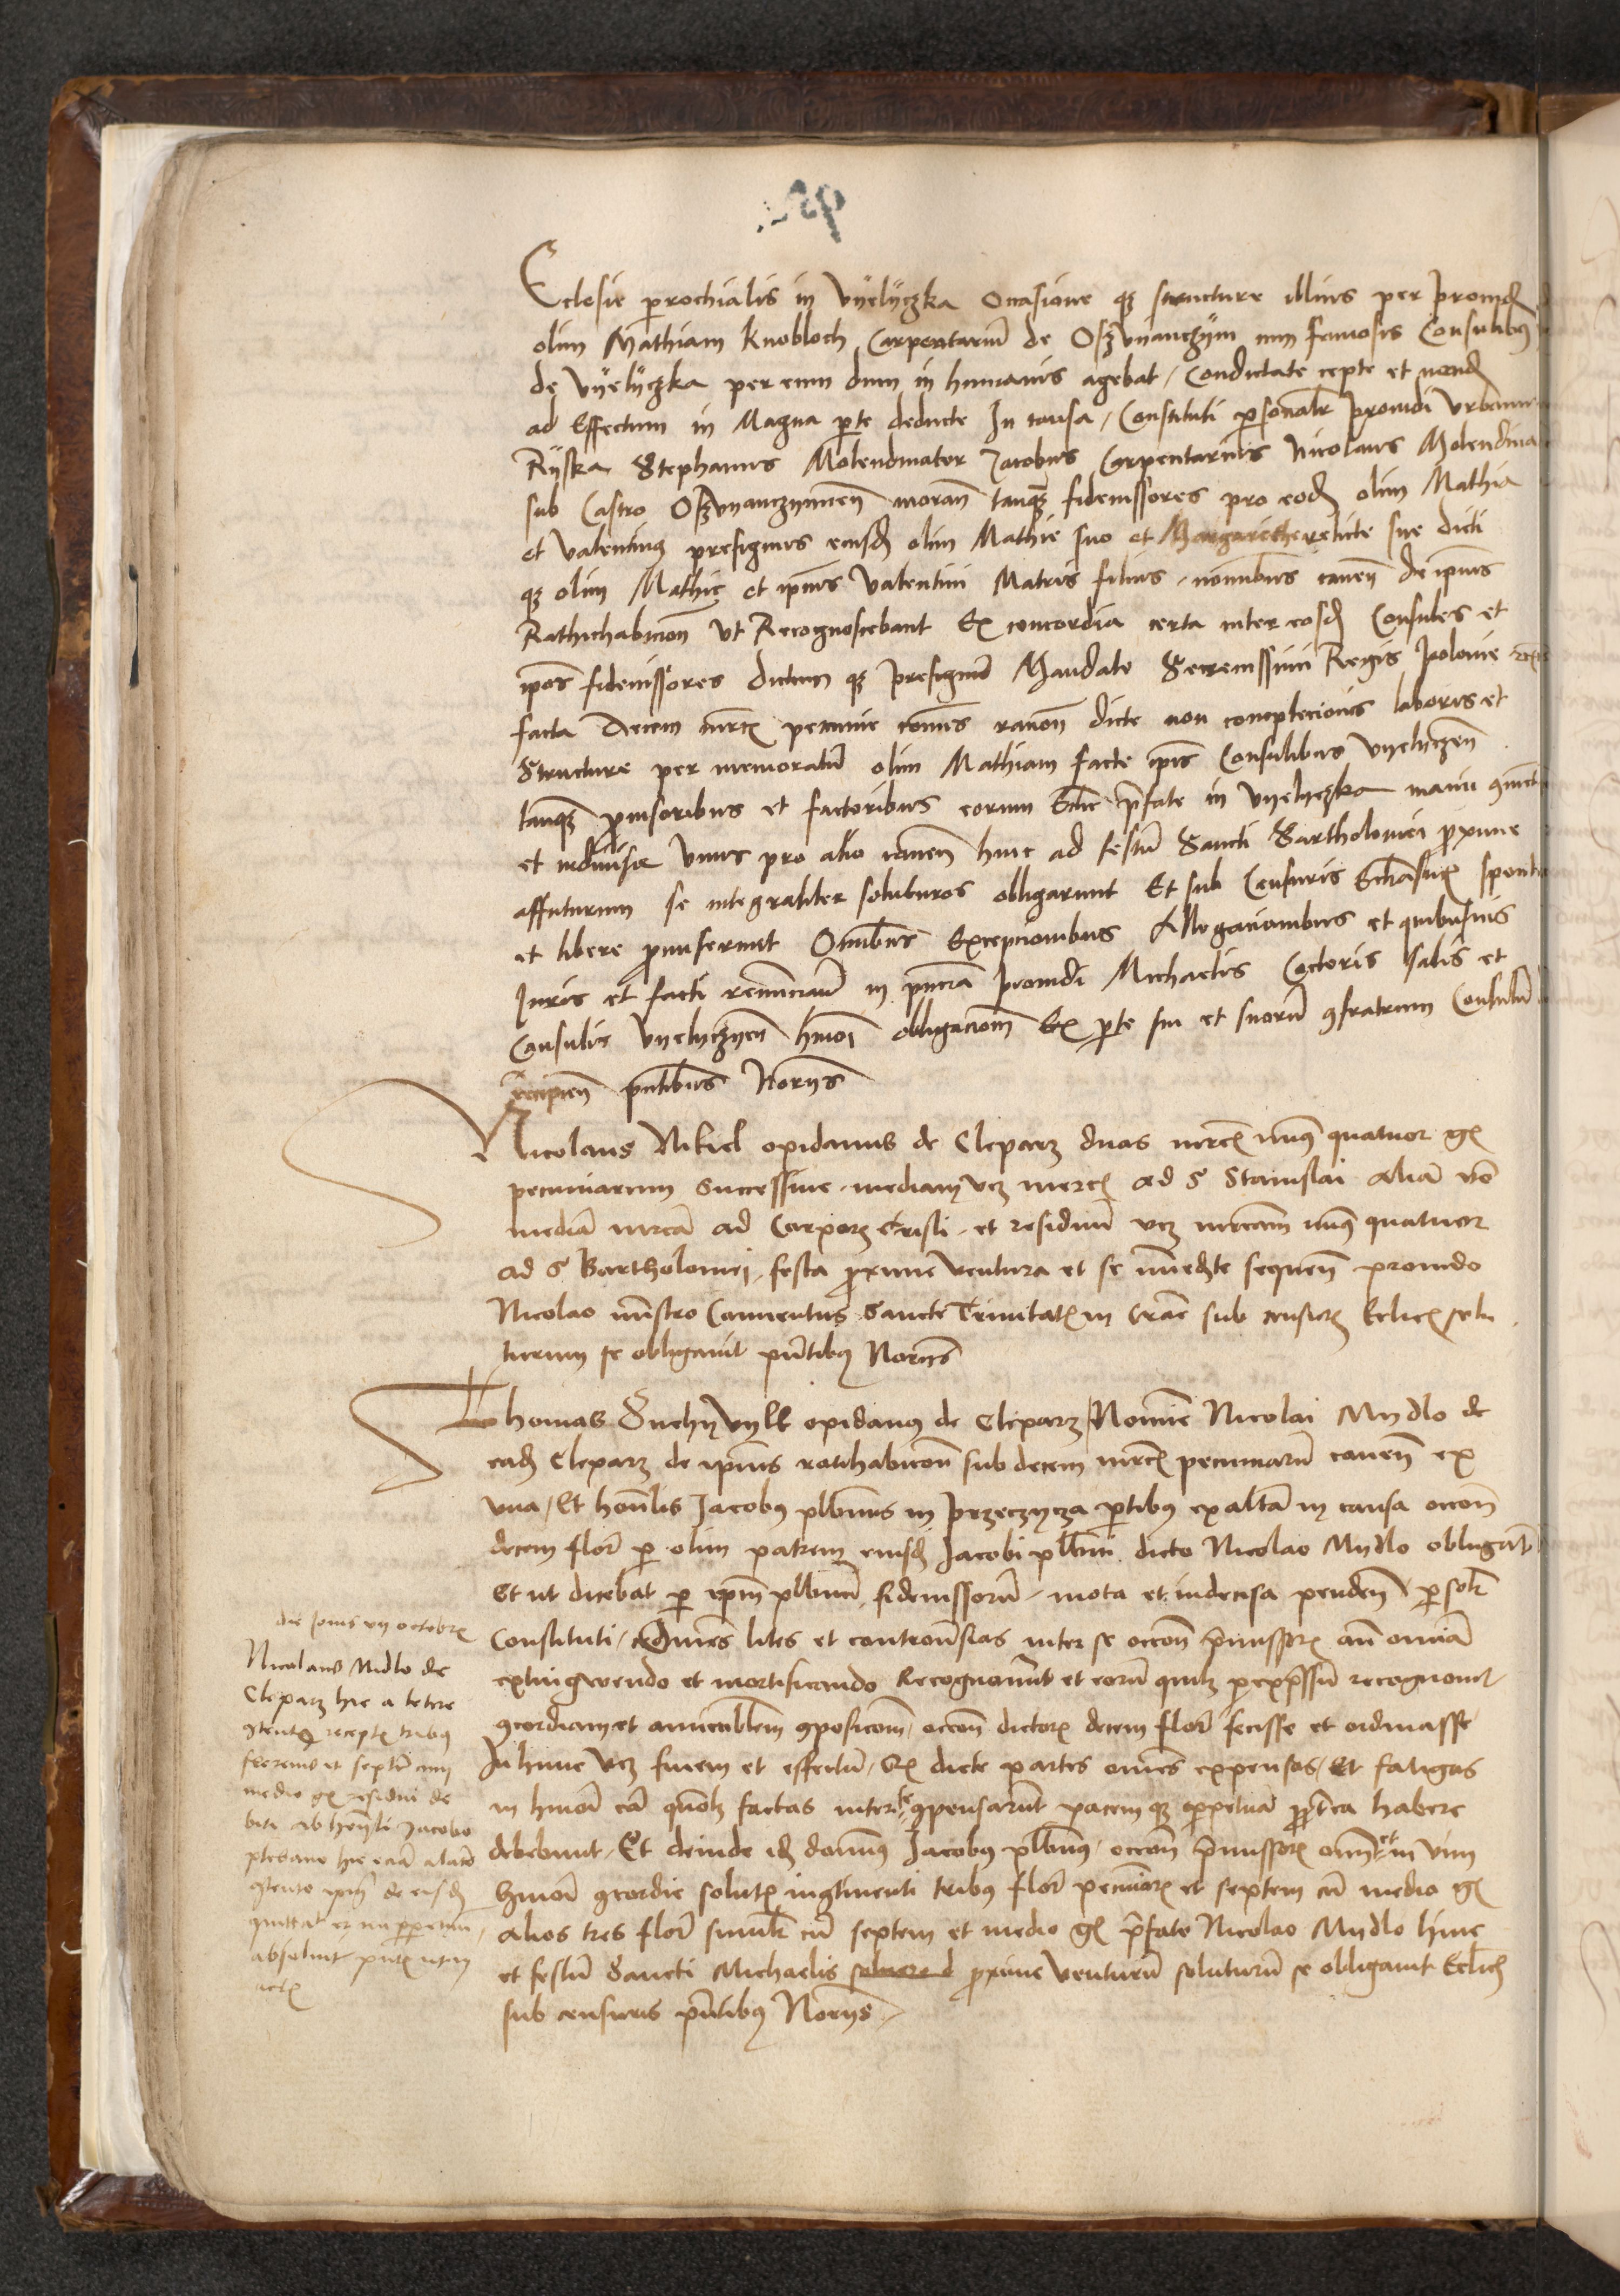 Ecclesie parochialis in Vyelyczka Occasione qz structure illius per prouid
olim Mathiam Knobloch Carpentariu de Oszvyanczym cum famosis Consulibus
de Vyelyczka per eum dum in humanis agebat / Condictate cepte et nond
ad Effectum in Magna parte deducte In causa / Constituti personalr prouidi Vrbanus
Ryska Stephanus Molendinator Jacobus Carpentarius Nicolaus Molendina
sub Castro Oszvyanczymen moran tanqz fideiussores pro eod olim Mathia
et Valentinus prefignus eiusd olim Mathie suo et Margarethe relicte sue dicti
qz olim Mathie et ipius Valentini Matris filius nominibus cauen de ipius
Rathihabicion Vt Recognoscebant Ex concordia certa inter eosd Consules et
ipos fideiussores dictum qz prefignu Mandato Serenissimi Regis Polonie
facta Decem mrcs pecunie comunis racion dicte non complecionis laboris et
Structure per memoratu olim Mathiam facte ipis Consulibus Vyelyczen
tanqz prouisoribus et factoribus eorum Eclie prefate in Vyelyczka manu
et indiuisa Vnus pro alio cauen hinc ad festu Sancti Bartholomei proxime
affuturum se integraliter soluturos obligarunt Et sub Censuris Ecclesiasticis
et libere promiserunt Omnibus Excepcionibus Allegacionibus et quibusuis
Juris et facti renunciau in pncia prouidi Michaelis Coctoris salis et
Consulis Vyelyczyen hmoi obligacion Ex parte sui et suoru confratrum Consulu
recipien pntibus Norys
Nicolaus Nikiel opidanus de Cleparz duas mrcs minus quatuor gs
pecuniarum successiue mediam vcz mrcs ad S Stanislai alia vo
media mrca ad Corporis Cristi et residuu vcz mrcam minus quatuor
ad S Bartholomei festa proxime ventura et se immediate sequen prouido
Nicolao ministro Conuentus Sancte Trinitatis in Crac sub censuris Eclicis solu
turum se obligauit pntibus Norys
Thomas opidanus de Cleparz Nomine Nicolai Mydlo de
ead Cleparz de ipius ratihabicon sub decem mrcs pecuniaru cauen ex
vna / Et honlis Jacobus plbnus in Przeczycza partibus ex alta in causa occon
decem flor per olim patrem eiusd Jacobi plbni dicto Nicolao Mydlo obligat
Et ut dicebat per ipm plbnu fideiussoru mota et indecisa penden personlr
Constituti omes lites et controuersias inter se occon premissor
extingwendo et mortificando Recognouerunt et eoru quilz per expressu recognouit
concordiam et amicablem composicom occon dictor decem flor fecisse et ordinasse
In hunc vcz finem et effectu qr dicte partes omes expensas et fatigas
in hmoi ca quolz factas inter se compensarunt pacem qz perpetua habere
debebunt Et deinde id domnus Jacobus plbnus occon premissor et in vim
hmoi concordie solutis ingtinenti tribus flor pecuniar et septem cu medio gs
alios tres flor similr cu septem et medio gs prefato Nicolao Mydlo hinc
et festu Sancti Michaelis proxime venturu soluturu se obligauit Eclics
sub censuris pntibus Norys
die Jouis vii octobris
Nicolaus Midlo de
Cleparz hic a tetere
contentus receptis tribus
florenis et septem cum
medio gs residui de
biti ab honbli Jacobo
plebano hic
contento ipm de eisd
quittat et in perpetuu
absoluit
actis